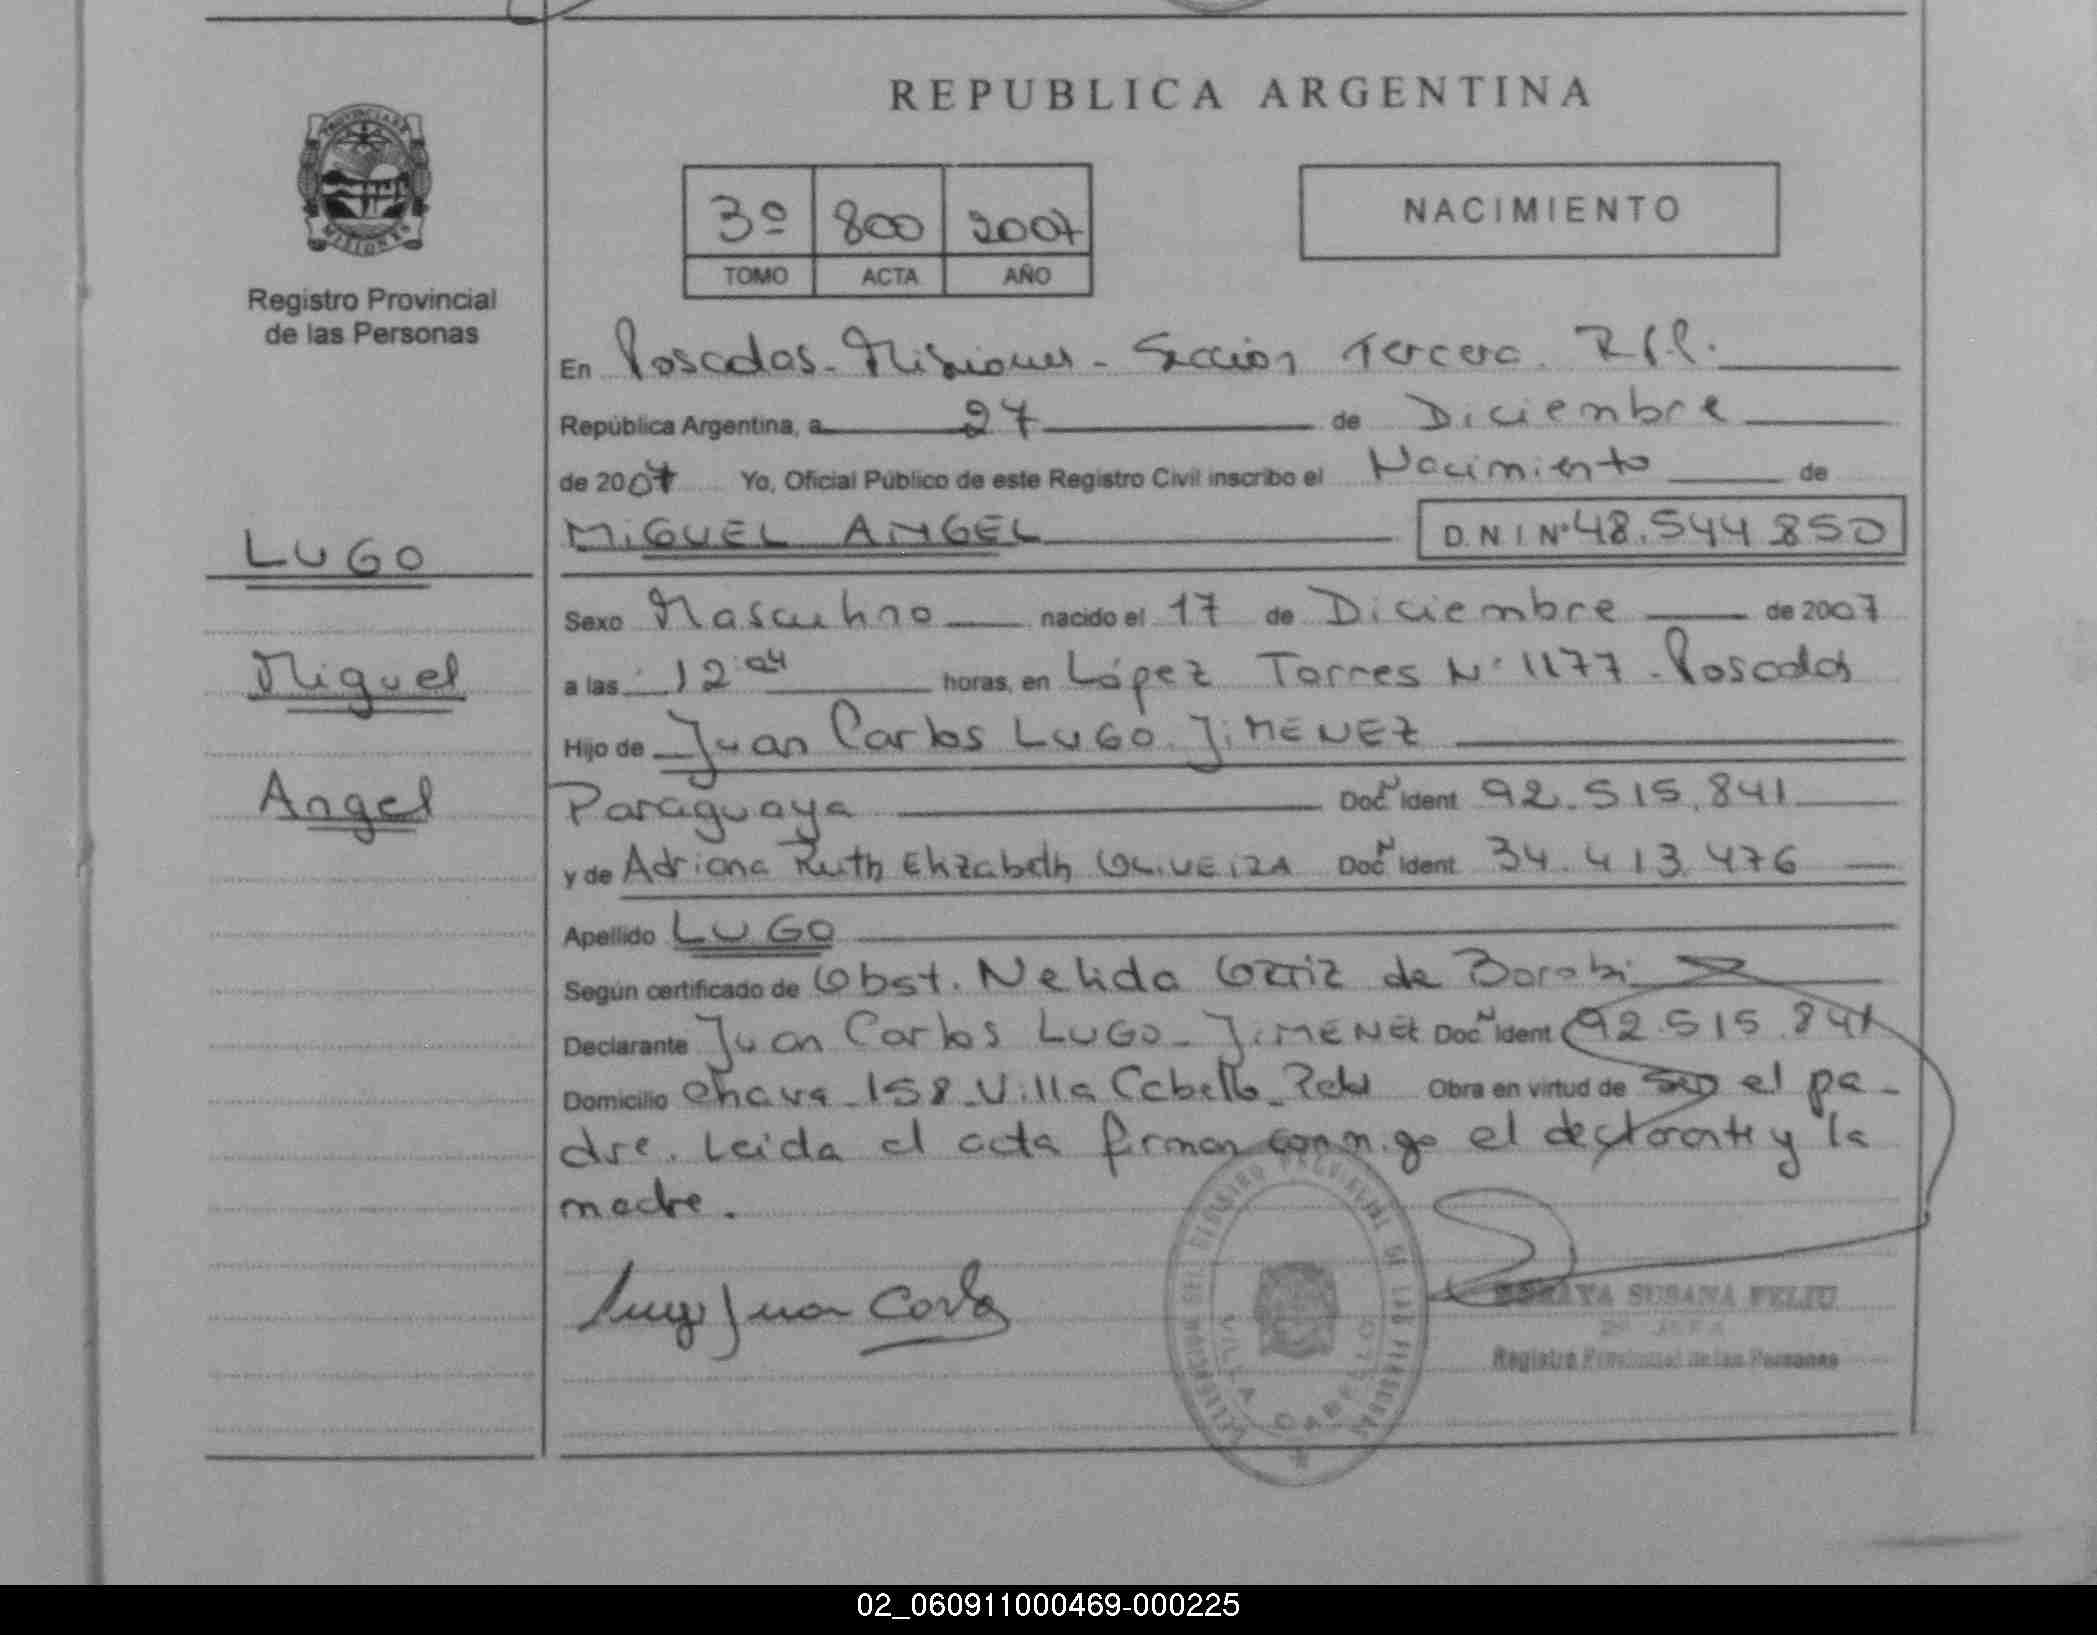 REPUBLICA ARGENTINA
PROVINCIA DE
MISIONES
Registro Provincial
de las Personas
3º 800 2007
TOMO ACTA AÑO
NACIMIENTO
En Posadas - Misiones - Sección Tercera. R.P.P.
República Argentina, a 27 de Diciembre
de 2007 Yo, Oficial Público de este Registro Civil inscribo el Nacimiento de
MIGUEL ANGEL D.N.I Nº 48.544.850
LUGO
Miguel
Angel
Sexo Masculino nacido el 17 de Diciembre de 2007
a las 12:04 horas, en López Torres Nº 1177 - Posadas
Hijo de Juan Carlos LUGO JIMENEZ
Paraguaya Doc N Ident 92.515.841
y de Adriana Ruth Elizabeth OLIVEIRA Doc N Ident 34.413.476
Apellido LUGO
Según certificado de Obst. Nelida Ortiz de
Declarante Juan Carlos LUGO - JIMENEZ Doc N Ident 92.515.841
Domicilio Chava 158 - Villa Cabello - Pdas Obra en virtud de ser el pa-
dre. Leida el acta firman conmigo el declarante y la
madre.
Lugo Juan Carlos
REGISTRO PROVINCIAL DE LAS PERSONAS
VILLA CABELLO
SUSANA FELIU
Registro Provincial de las Personas
02_060911000469-000225